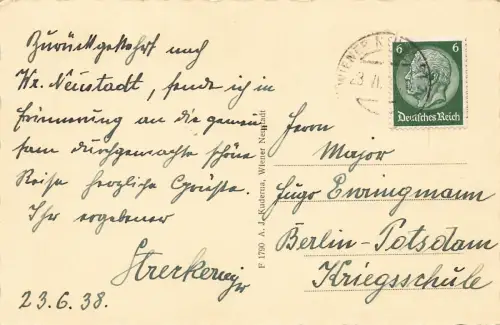 Zurückgekehrt nach
Wr. Neustadt, sende ich in
Erinnerung an die gemein
sam durchgemachte schöne
Reise herzliche Grüße.
Ihr ergebener
23.6.38.
F 1790 A. J. Kuderna, Wiener Neustadt
WIENER NEU
6 6
Deutsches Reich
Herrn
Major
Hugo Ewringmann
Berlin-Potsdam
Kriegsschule